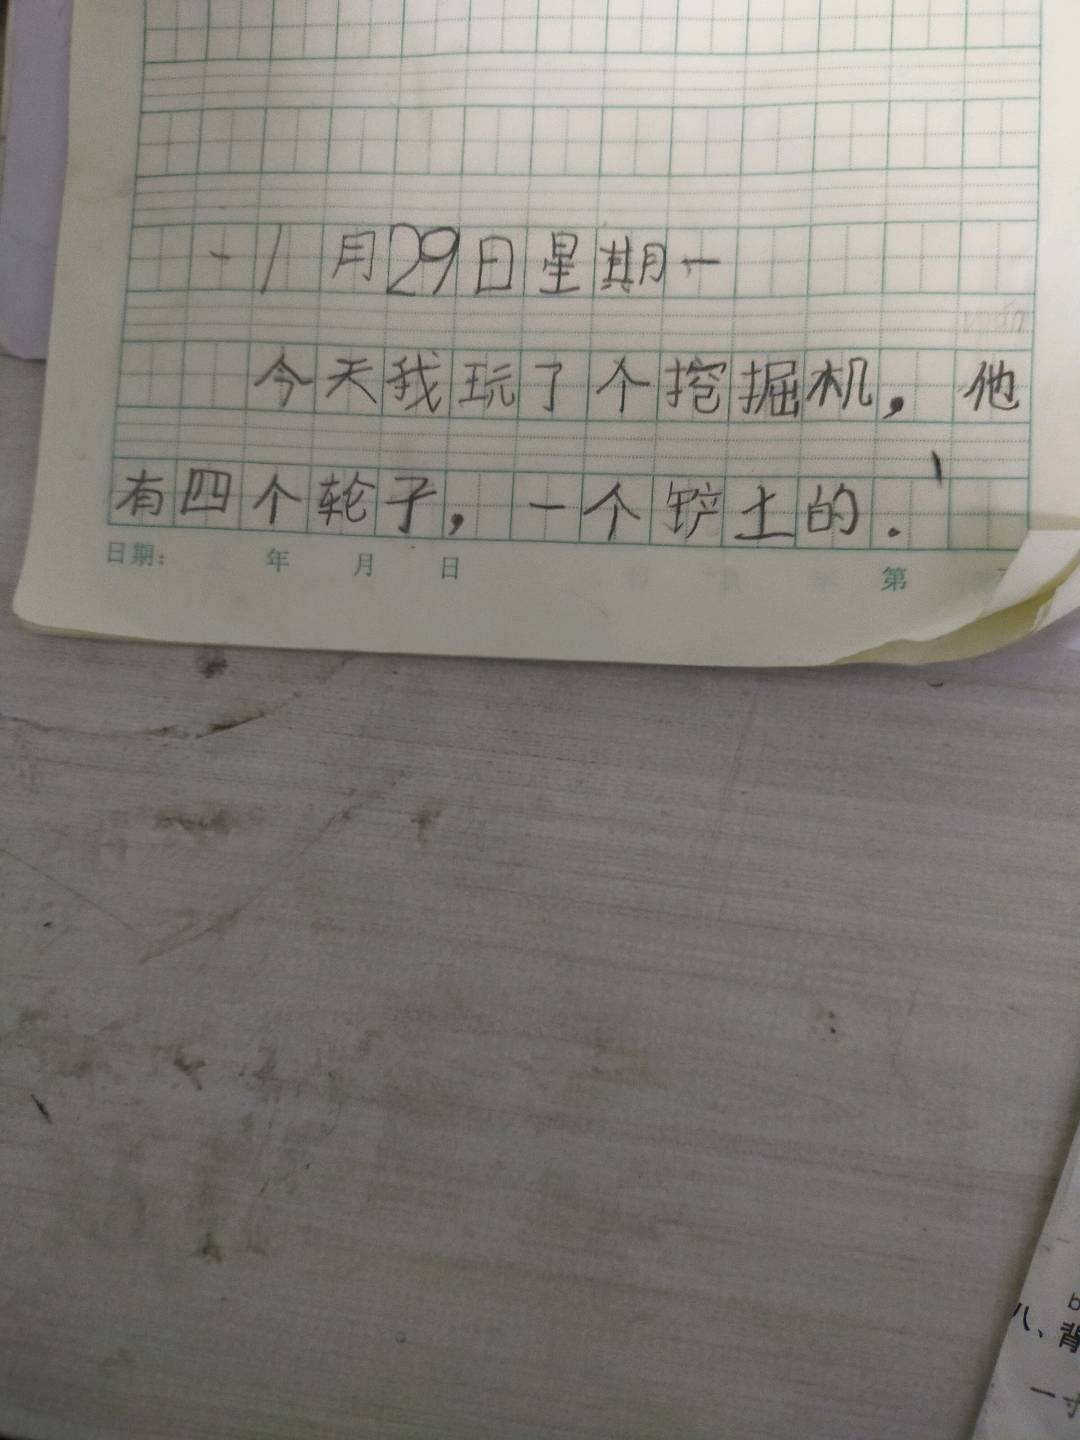 -1月29日星期一
今天我玩了个挖掘机，他
有四个轮子，一个铲土的.
日期： 年 月 日 第
八、背
一寸